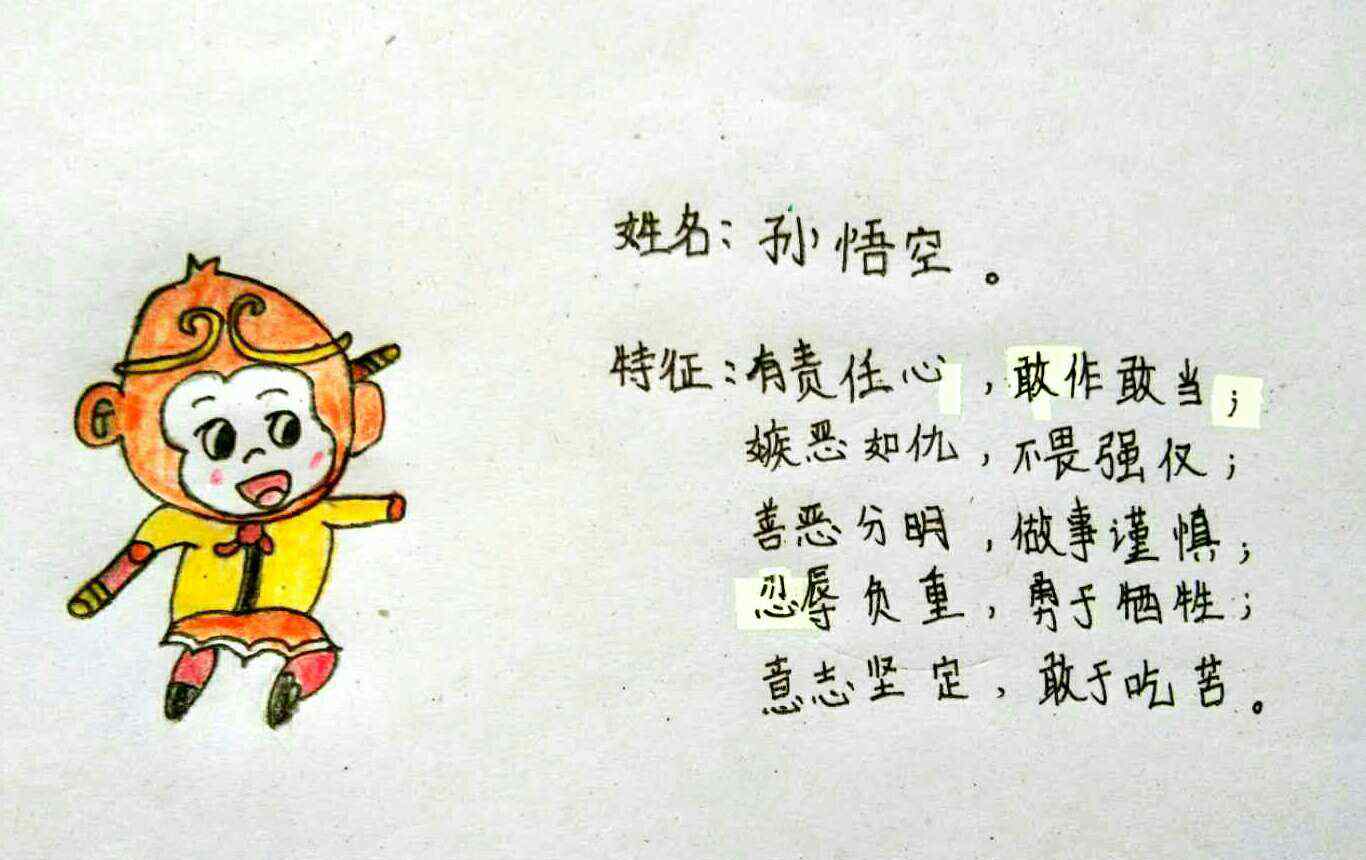 姓名：孙悟空。
特征：有责任心，敢作敢当；
嫉恶如仇，不畏强仅；
善恶分明，做事谨慎；
忍辱负重，勇于牺牲；
意志坚定，敢于吃苦。